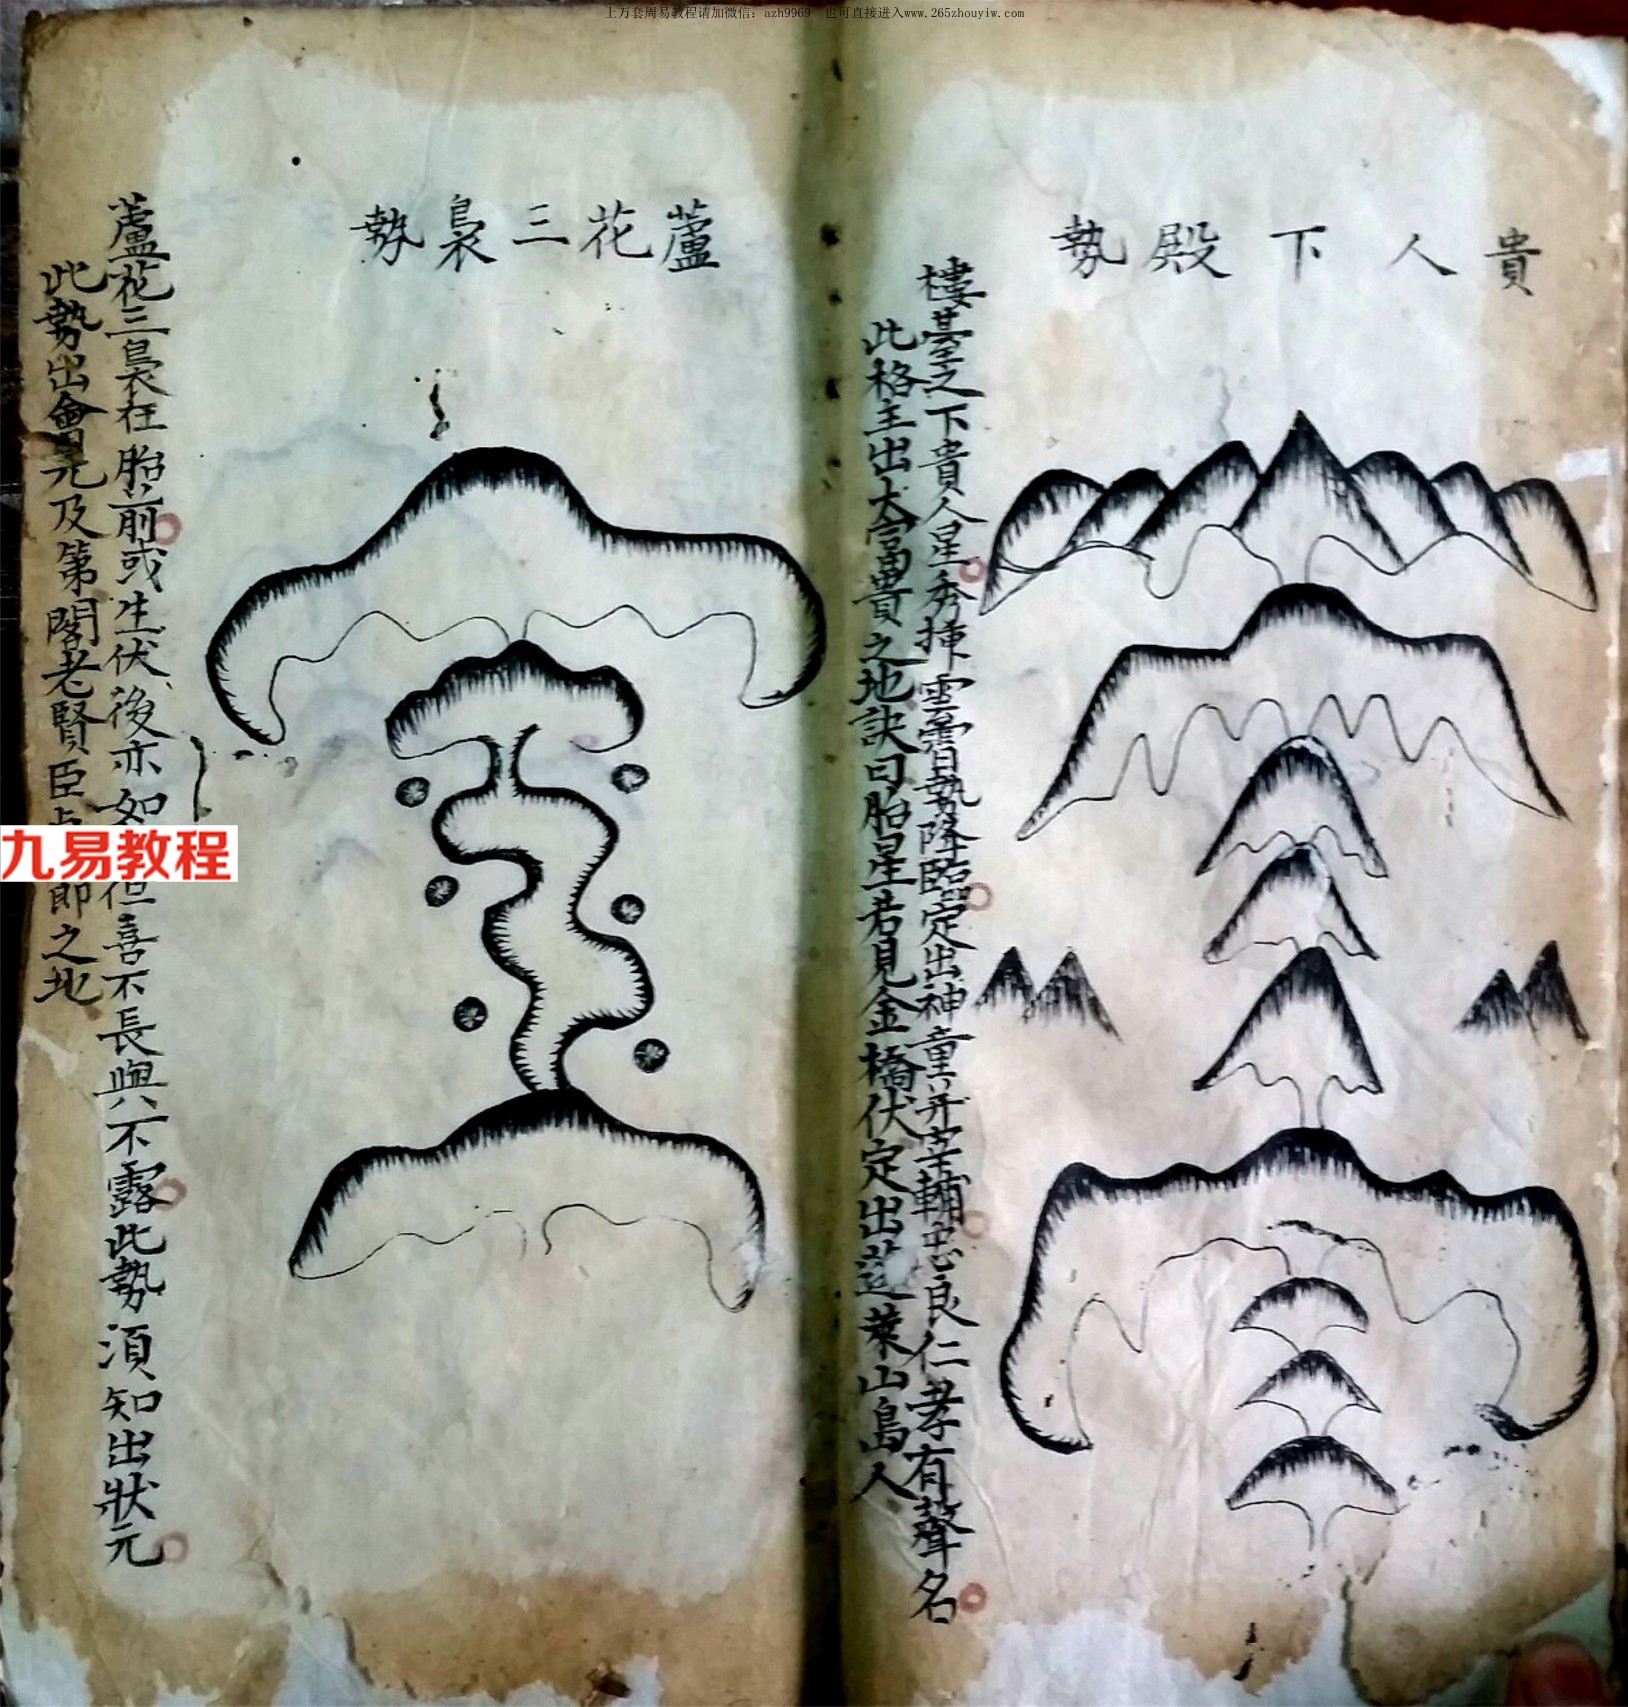 上万套周易教程请加微信：azh9969 也可直接进入www.265zhouyiw.com
貴人下殿勢
樓基之下貴人星秀揷雲霄勢降臨定出神童并宰輔忠良仁孝有聲名
此格主出大富貴之地訣曰胎星若見金橋伏定出蓬萊山島人
蘆花三裊勢
蘆花三裊在胎前或生伏後亦如 但喜不長與不露此勢須知出狀元
此勢出會元及第閣老賢臣 節之地
九易教程